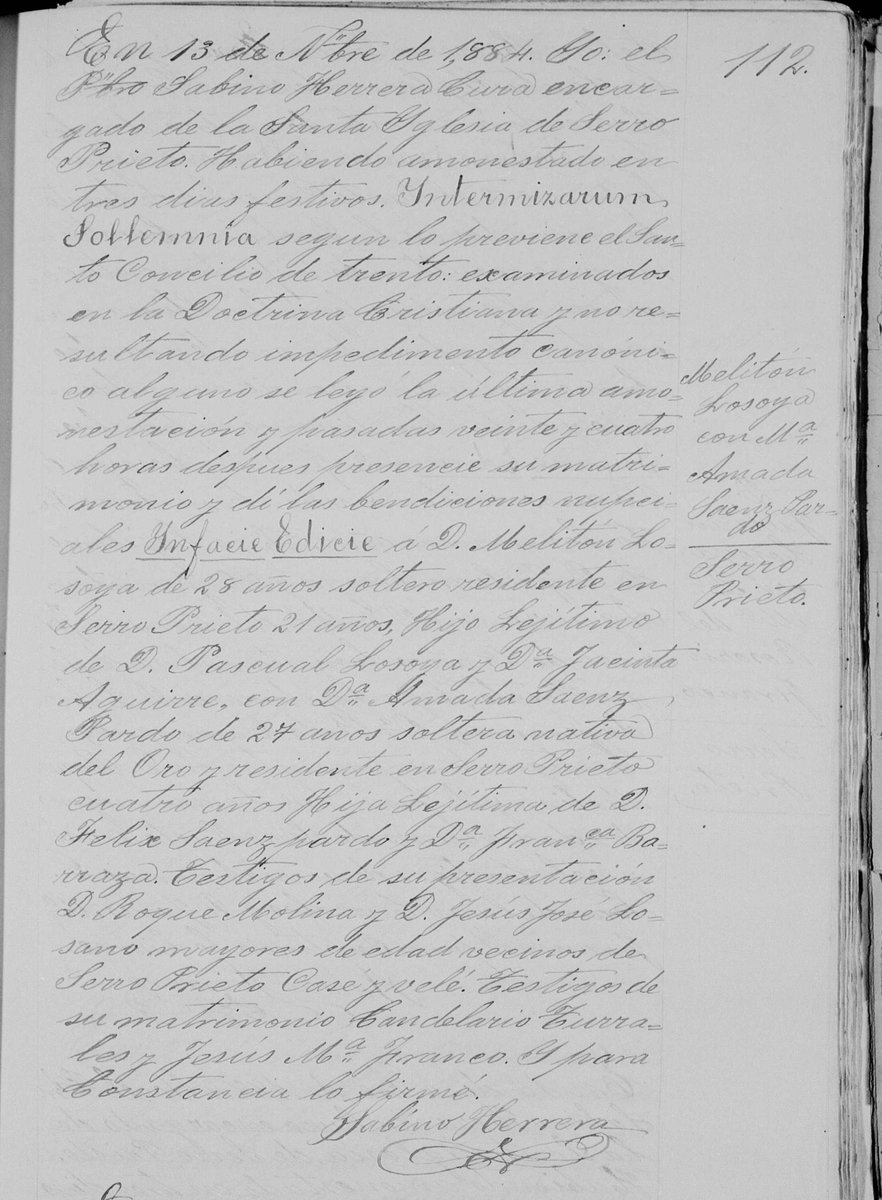 En 13 de Nbre de 1,884. Yo: el
112.
Pbro Sabino Herrera Cura encar=
gado de la Santa Yglesia de Serro
Prieto. Habiendo amonestado en
tres dias festivos. Yntermizarum
Sollemnia segun lo previene el San=
to Concilio de trento: examinados
en la Doctrina Cristiana y no re=
sultando impedimento canóni=
co alguno se leyó la última amo=
nestación y pasadas veinte y cuatro
horas despues presencie su matri=
monio y dí las bendiciones nupci=
ales Ynfacie Edicie á D. Melitón Lo=
soya de 28 años soltero residente en
Serro Prieto 21 años, Hijo Lejítimo
de D. Pascual Losoya y Da. Jacinta
Aguirre, con Da. Amada Saenz
Pardo de 27 años soltera nativa
del Oro y residente en Serro Prieto
cuatro años Hija Lejítima de D.
Felix Saenz pardo y Da. Franca. Ba=
rraza. Testigos de su presentación
D. Roque Molina y D. Jesús José Lo=
sano mayores de edad vecinos de
Serro Prieto Casé y velé. Testigos de
su matrimonio Candelario Turra=
les y Jesús Ma. Franco. Y para
Constancia lo firmé.
Sabino Herrera
Melitón
Losoya
con Ma.
Amada
Saenz Par-
do
Serro
Prieto.